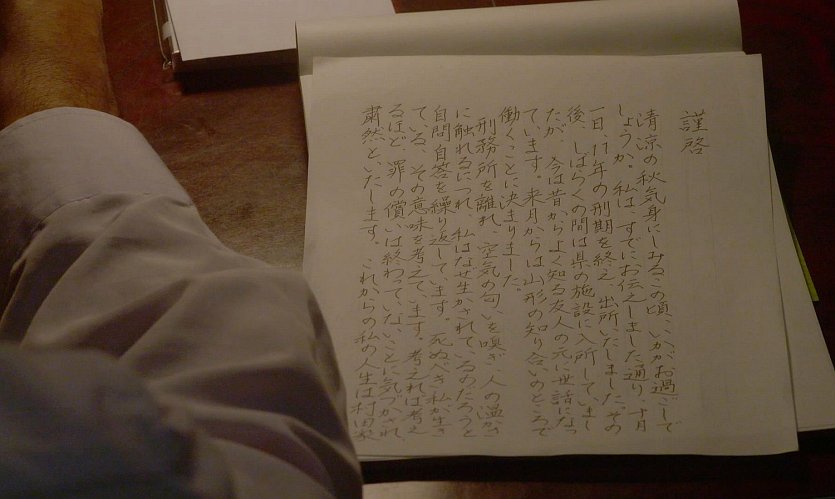 謹啓
清涼の秋気身にしみるこの頃、いかがお過ごしで
しょうか。私は、すでにお伝えしました通り、十月
一日、11年の刑期を終え、出所いたしました。その
後、しばらくの間は県の施設に入所していまし
たが、今は昔からよく知る友人の元に世話になっ
ています。来月からは山形の知り合いのところで
働くことに決まりました。
刑務所を離れ、空気の匂いを嗅ぎ、人の温かさ
に触れるにつれ、私はなぜ生かされているのだろうと
自問自答を繰り返しています。死ぬべき私が生き
ている、その意味を考えています。考えれば考え
るほど、罪の償いは終わっていないことに気づかされ、
粛然といたします。これからの私の人生は村田家